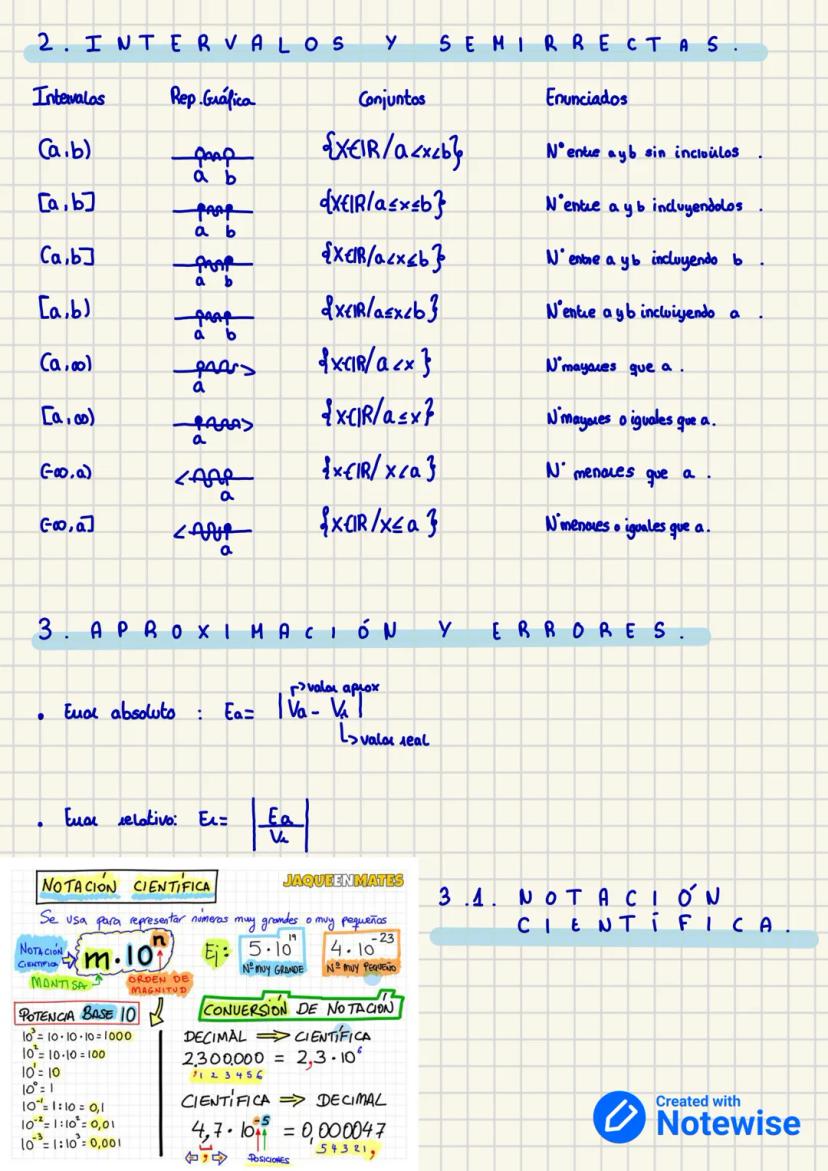 2. INTERVALOS Y SEMIRRECTAS.
Intervalos Rep.Gráfica Conjuntos Enunciados
(a,b) a b {x∈IR/a<x<b} Nº entre a y b sin incluirlos.
[a,b] a b {x∈IR/a≤x≤b} Nº entre a y b incluyendolos.
(a,b] a b {x∈IR/a<x≤b} Nº entre a y b incluyendo b.
[a,b) a b {x∈IR/a≤x<b} Nº entre a y b incluiyendo a.
(a,∞) a {x∈IR/a<x} Nº mayores que a.
[a,∞) a {x∈IR/a≤x} Nº mayores o iguales que a.
(-∞,a) a {x∈IR/x<a} Nº menores que a.
(-∞,a] a {x∈IR/x≤a} Nº menores o iguales que a.
3. APROXIMACIÓN Y ERRORES.
valor aprox
• Error absoluto: Ea= |Va - Vr|
valor real
• Error relativo: Er= |Ea/Vr|
NOTACIÓN CIENTÍFICA
JAQUEENMATES
Se usa para representar números muy grandes o muy pequeños
NOTACIÓN CIENTÍFICA
m·10ⁿ
MANTISA
ORDEN DE MAGNITUD
Ej:
5·10¹⁹
Nº MUY GRANDE
4·10⁻²³
Nº MUY PEQUEÑO
POTENCIA BASE 10
10³=10·10·10=1000
10²=10·10=100
10¹=10
10⁰=1
10⁻¹=1:10=0,1
10⁻²=1:10²=0,01
10⁻³=1:10³=0,001
CONVERSIÓN DE NOTACIÓN
DECIMAL ⇒ CIENTÍFICA
2,300.000 = 2,3·10⁶
1 2 3 4 5 6
CIENTÍFICA ⇒ DECIMAL
4,7·10⁻⁵ = 0,000047
5 4 3 2 1 ,
POSICIONES
3.1. NOTACIÓN
CIENTÍFICA.
Created with
Notewise